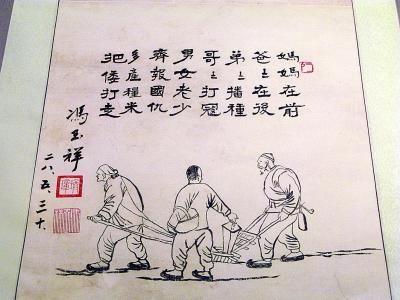 媽媽在前
爸〻在後
弟〻播種
哥〻打寇
男女老少
齊報國仇
多產糧米
把倭打走
馮玉祥
二八、五、三十、